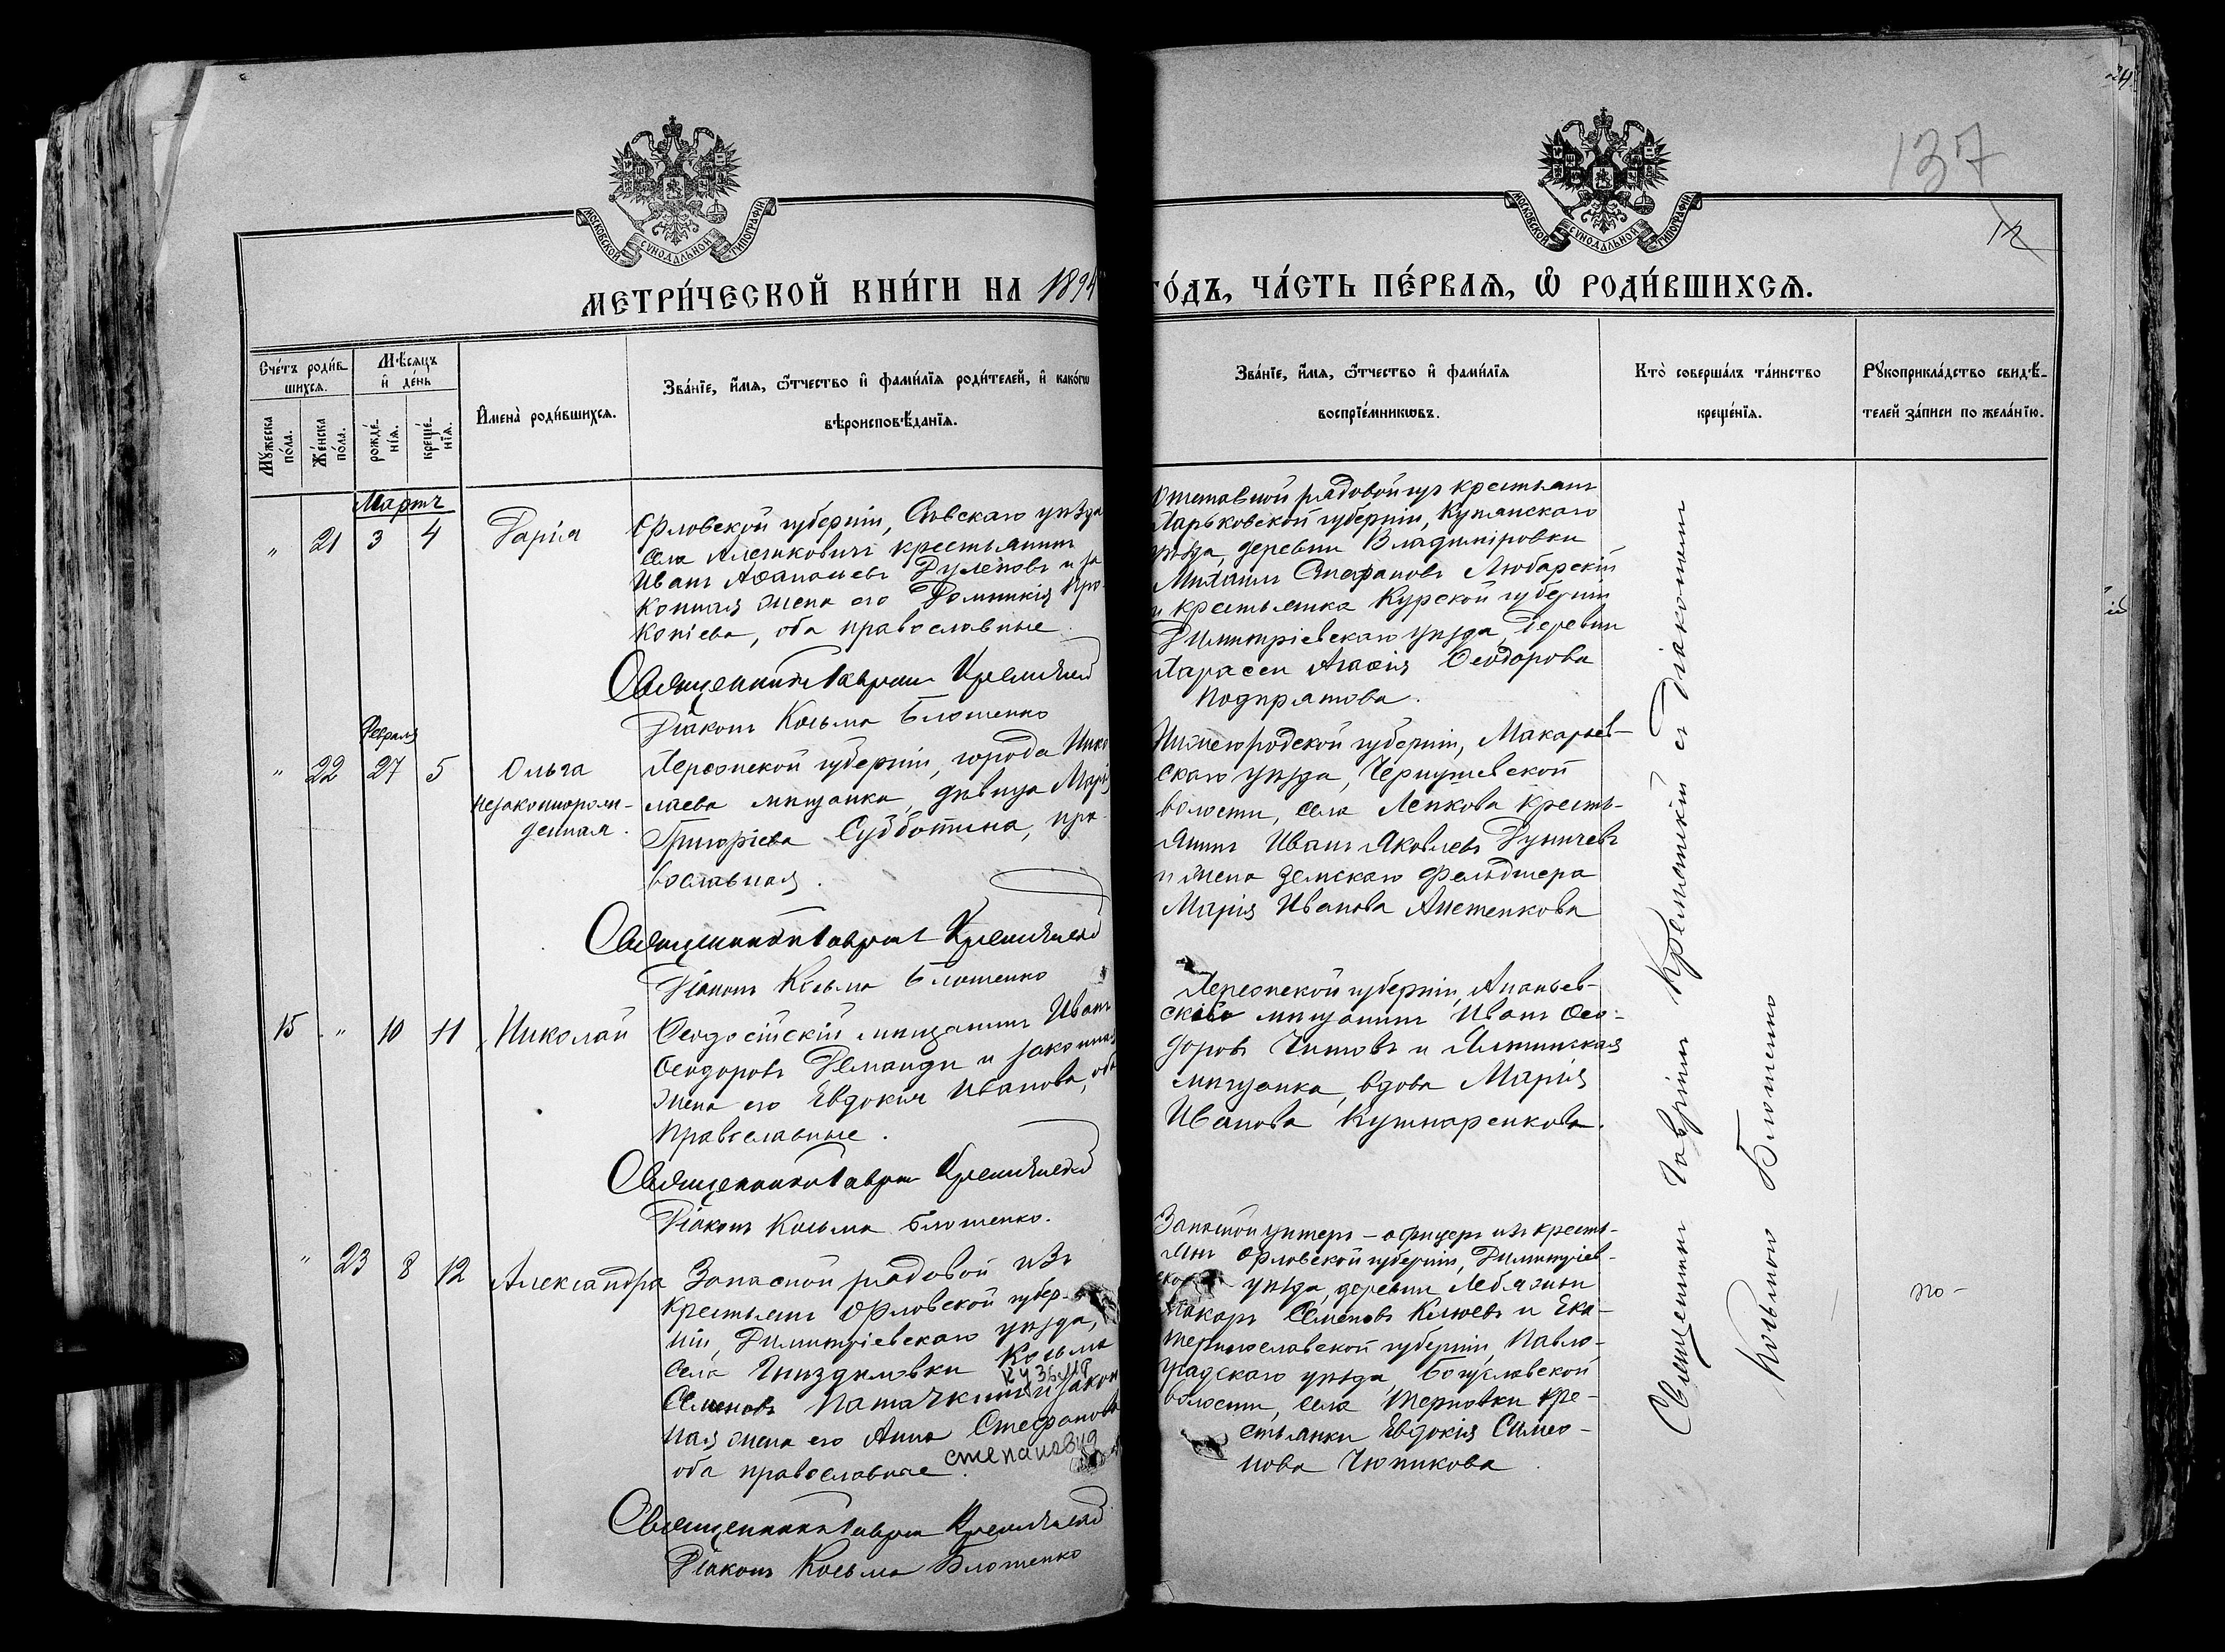 137
12
МОСКОВСКОЙ СУНОДАЛЬНОЙ ТИПОГРАФІИ
МОСКОВСКОЙ СУНОДАЛЬНОЙ ТИПОГРАФІИ
МЕТРИ́ЧЕСКОЙ КНИ́ГИ НА 1894
ГО́ДЪ, ЧА́СТЬ ПЕ́РВАѦ, Ѡ҆ РОДИ́ВШИХСѦ.
Сче́тъ роди́в
шихсѧ.
Мѣ́сѧцъ
и҆ де́нь
Мꙋ́жеска
по́ла.
Же́нска
по́ла.
рожде́-
нїѧ.
креще́-
нїѧ.
И҆мена̀ роди́вшихсѧ.
Зва́нїе, и҆́мѧ, ѻ҆́тчество и҆ фами́лїѧ роди́телей, и҆ како́гѡ
вѣроисповѣ́данїѧ.
Зва́нїе, и҆́мѧ, ѻ҆́тчество и҆ фами́лїѧ
воспрїе́мникѡвъ.
Кто̀ соверша́лъ та́инство
креще́нїѧ.
Рꙋкоприкла́дство свидѣ́-
телей за́писи по жела́нїю.
Мартъ
" 21 3 4
Дарія
Орловской губерніи, Сѣвскаго уѣзда
села Алешковичъ крестьянинъ
Иванъ Аѳанасьевъ Рулёновъ и за
конная жена его Домникія Про-
копіева, оба православные.
Священникъ Гавріилъ Кремянскій
Діаконъ Косьма Блошенко
Отставной рядовой изъ крестьянъ
Харьковской губерніи, Купянскаго
уѣзда, деревни Владиміровки
Михаилъ Стефановъ Любарскій
и крестьянка Курской губерніи
Димитріевскаго уѣзда, деревни
Агаѳія Ѳеодорова
Подпрятова.
Февраля
" 22 27 5
Ольга
незаконнорож-
денная.
Херсонской губерніи, города Нико
лаева мѣщанка, дѣвица Марія
Григоріева Субботина, пра-
вославная.
Священникъ Гавріилъ Кремянскій
Діаконъ Косьма Блошенко
Нижегородской губерніи, Макарьев-
скаго уѣзда,
волости, села кресть-
янинъ Иванъ Яковлевъ
и жена земскаго фельдшера
Марія Иванова
15 " 10 11
Николай
Ѳеодосійскій мѣщанинъ Иванъ
Ѳеодоровъ и законная
жена его Евдокія Иванова, оба
православные.
Священникъ Гавріилъ Кремянскій
Діаконъ Косьма Блошенко.
Херсонской губерніи, Ананьев-
скій мѣщанинъ Иванъ Ѳео-
доровъ Титовъ и Ялтинская
мѣщанка, вдова Марія
Иванова Кушнаренкова.
" 23 8 12
Александра
Запасной рядовой изъ
крестьянъ Орловской губер-
ніи, Димитріевскаго уѣзда,
села Гнѣздиловки Косьма
Кузьма
Семеновъ Паточкинъ и закон
ная жена его Анна Стефанова
степановна
оба православные.
Священникъ Гавріилъ Кремянскій
Діаконъ Косьма Блошенко
Запасной унтеръ-офицеръ изъ кресть-
янъ Орловской губерніи, Димитріев-
уѣзда, деревни
Макаръ Семеновъ Клюевъ и Ека-
теринославской губерніи, Павло-
градскаго уѣзда, Богуславской
волости, села Терновки кре-
стьянка Евдокія Симео-
нова Чюпикова
Священникъ Гавріилъ Кремянскій съ Діакономъ
Косьмою Блошенко